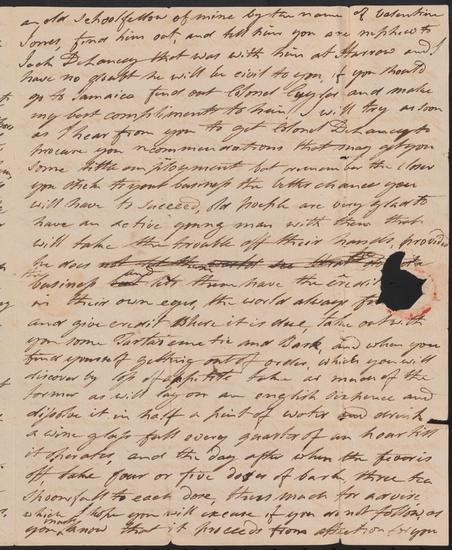 an old Schoolfellow of mine by the name of Valentine
Jones, find him out, and tell him you are nephew to
Jack Delancey that was with him at Harrow and I
have no doubt he will be civil to you, if you should
go to Jamaica find out Colonel and make
my best compliments to him. I will try as soon
as I hear from you to get Colonel Delancey to
procure you recommendations that may get you
some little employment but remember the closer
you stick to your business the better chance you
will have to succeed, old people are very glad to
have an active young man with them that
will take the trouble off their hands, provided
he does not let them
business but and lets them have the credit
in their own eyes, the world always
and give credit where it is due, take out with
you some Tartar emetic and Bark, and when you
find yourself getting out of order, which you will
discover by loss of appetite take as much of the
former as will lay on an english sixpence and
dissolve it in half a pint of water and drink
a wine glass full every quarter of an hour till
it operates, and the day after when the fever is
off take four or five doses of bark, three tea
spoonsfull to each dose, thus much for advise
which I hope you will excuse if you do not follow, as
you must know that it proceeds from affection to you